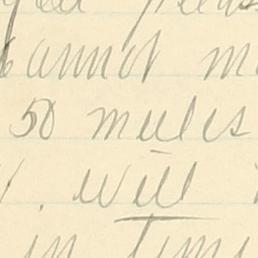 cannot m
50 miles
. Will
in time